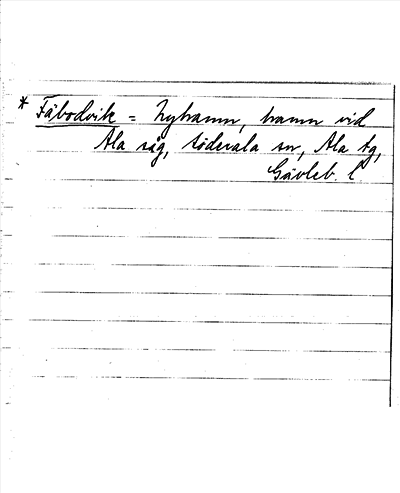 * Fäbodvik = Nyhamn, hamn vid
Ala såg, Söderala sn, Ala tg,
Gävleb. l